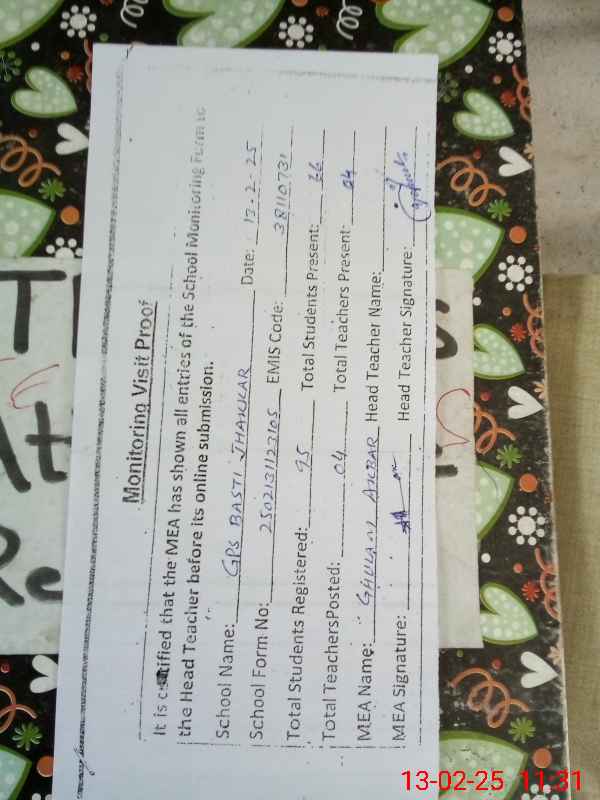 Monitoring Visit Proof
It is certified that the MEA has shown all entries of the School Monitoring Form to
the Head Teacher before its online submission.
School Name: GPS BASTI JHAKKAR Date: 13-2-25
School Form No: 2502131123105 EMIS Code: 38110731
Total Students Registered: 95 Total Students Present: 66
Total TeachersPosted: 04 Total Teachers Present: 04
MEA Name: GHULAM AKBAR Head Teacher Name:
MEA Signature: Head Teacher Signature:
13-02-25 11:31